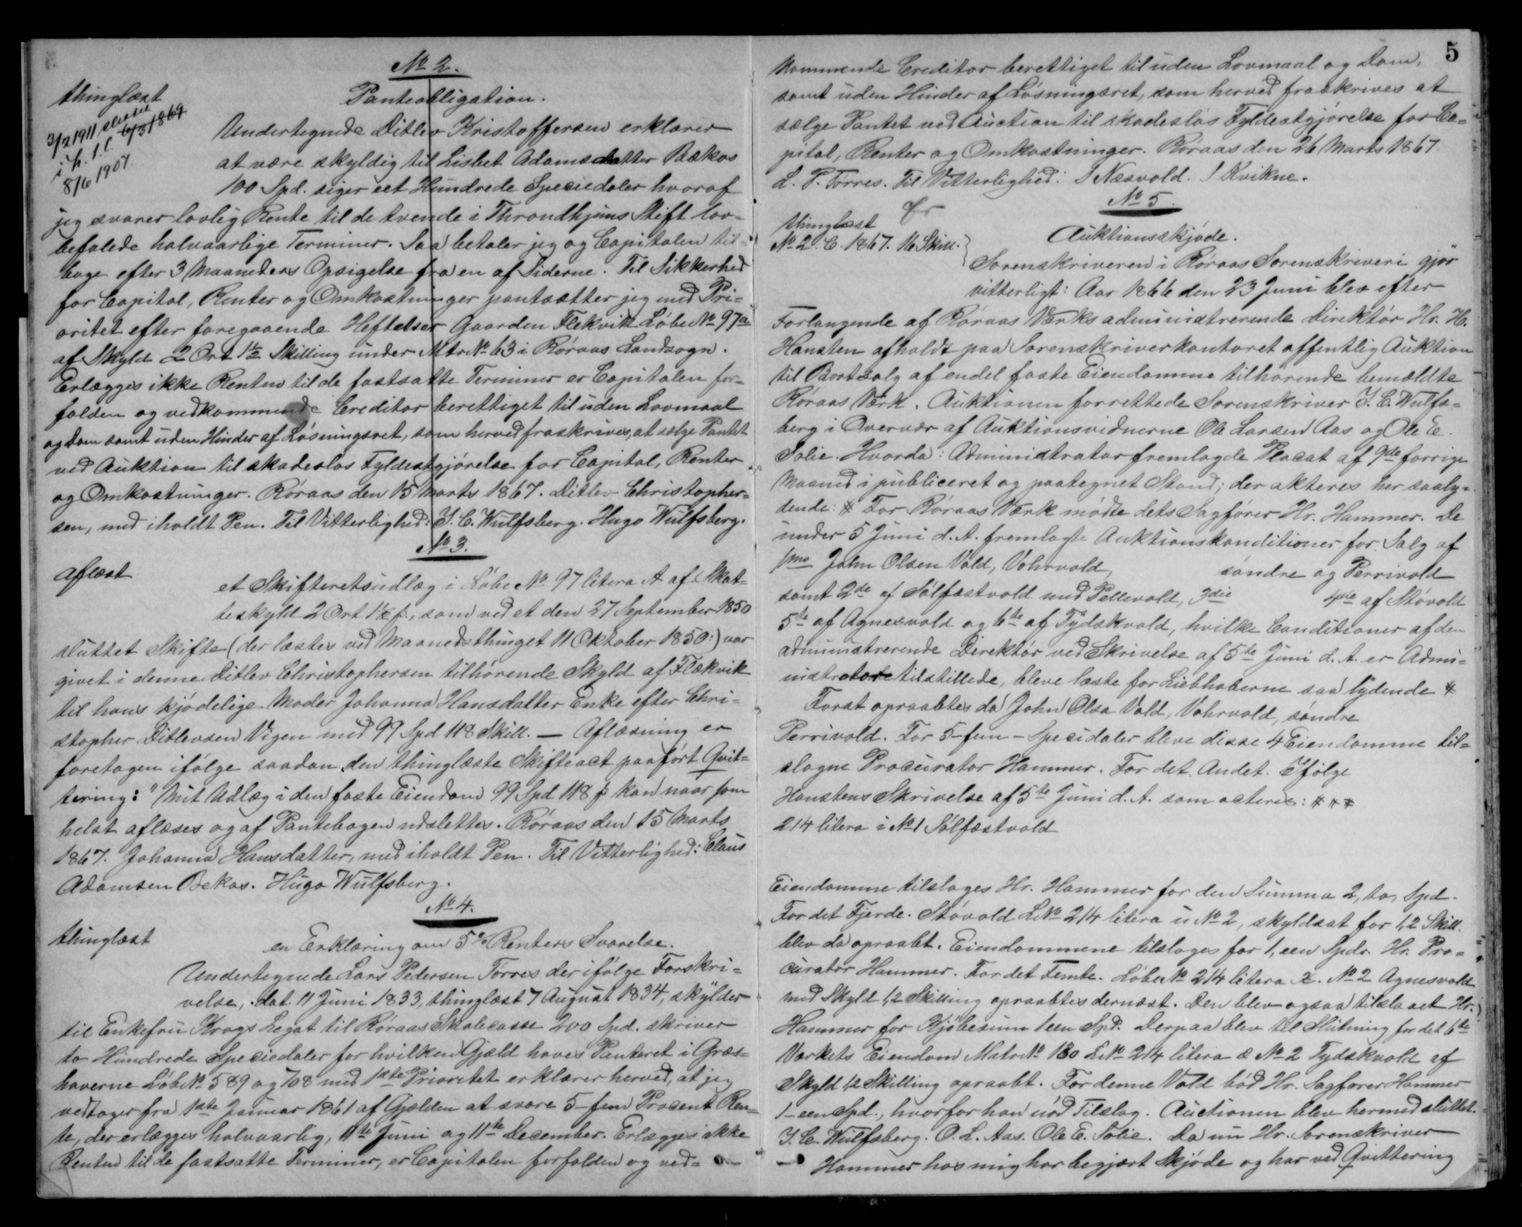 No 2.
Panteobligation.
thinglæst
3/2 1911
8/6 1901
Undertegnede Ditlev Kristoffersen erklærer
at være skyldig til Lisbet Adamsdatter Bækos
100 Spd. siger eet Hundrede Speciedaler hvoraf
jeg svarer lovlig Rente til de tvende i Throndhjems Stift lov-
befalede halvaarlige Terminer. Saa betaler jeg og Capitalen til-
bage efter 3 Maaneders Opsigelse fra en af Siderne. Til Sikkerhed
for Capital, Renter og Omkostninger pantsætter jeg med Pri-
oritet efter foregaaende Heftelser Gaarden Flekvik Løbe No 97a
af Skyld 2 Ort 1½ Skilling under Mtr No 63 i Røraas Landsogn.
Erlægges ikke Renten til de fastsatte Terminer er Capitalen for-
falden og vedkommende Creditor berettiget til uden Lovmaal
og Dom samt uden Hinder af Løsningsret, som herved fraskrives, at sælge Pantet
ved Auktion til skadesløs Fyldestgjørelse for Capital, Renter
og Omkostninger. Røraas den 15 Marts 1867. Ditlev Christopher-
sen, med iholdt Pen. Til Vitterlighed: I. C. Wulfsberg. Hugo Wulfsberg.
No 3.
Aflæst
et Skifteretsudlæg i Løbe No 97 litera A af Skat-
teskyld 2 Ort 1½ ß, som ved et den 27 September 1850
sluttet Skifte (der læstes ved Maanedsthinget 11 Oktober 1850:) var
givet i denne Ditlev Christophersen tilhørende Skyld af Flækvik
til hans kjødelige Moder Johanna Hansdatter Enke efter Chri-
stopher Ditlevsen Vigen med 99 Spd 118 Skill. — Aflæsning er
foretagen ifølge saadan den thinglæste Skifteact paaført Qvit-
tering: "Mit Udlæg i den faste Eiendom 99 Spd 118 ß kan naar som
helst aflæses og af Pantebogen udslettes. Røraas den 15 Marts
1867. Johanna Hansdatter, med iholdt Pen. Til Vitterlighed: Claus
Adamsen Bekos. Hugo Wulfsberg.
No 4.
thinglæst
en Erklæring om 5% Renters Svarelse.
Undertegnede Lars Pedersen Torres der ifølge Forskri-
velse, dat 11 Juni 1833, thinglæst 7 August 1834, skylder
til Enkefru Krags Legat til Røraas Skolecasse 200 Spd. skriver
to Hundrede Speciedaler for hvilken Gjæld haves Panteret i Græs-
haverne Løbe No 589 og 708 med 1ste Prioritet erklærer herved, at jeg
vedtager fra 1ste Januar 1861 af Gjælden at svare 5-fem Procent Ren-
te, der erlægges halvaarlig, 11te Juni og 11te December. Erlægges ikke
Renten til de fastsatte Terminer, er Capitalen forfalden og ved-
5
kommende Creditor berettiget til uden Lovmaal og Dom,
samt uden Hinder af Løsningsret, som herved fraskrives at
sælge Pantet ved Auction til skadesløs Fyldestgjørelse for Ca-
pital, Renter og Omkostninger. Røraas den 26 Marts 1867
L. P. Torres. Til Vitterlighed: J Næsvold. J Kvikne.
No 5.
thinglæst
No 2. C. 1867. 16 Skill.
Auktionsskjøde.
Sorenskriveren i Røraas Sorenskriveri gjør
vitterligt: Aar 1866 den 23 Juni blev efter
Forlangende af Røraas Værks administrerende Direktør Hr. H.
Hansten afholdt paa Sorenskriverkontoret offentlig Auktion
til Bortsalg af endel faste Eiendomme tilhørende bemældte
Røraas Værk. Auktionen forrettede Sorenskriver I. C. Wulfs-
berg i Overvær af Auktionsvidnerne Ole Larsen Aas og Ole E.
Solie. Hvorda: Administrator fremlagde Placat af 9de forrige
Maaned i publiceret og paategnet Stand; der akteres her saaly-
dende: # For Røraas Værk mødte dets Sagfører Hr. Hammer. De
under 5 Juni d. A. fremlagte Auktionskonditioner for Salg af
1mo John Olsen Vold, Vohrvold, søndre og Perrivold
samt 2de af Sølfæstvold med Pellevold, 3die 4de af Støvold
5te af Agnesvold og 6te af Tydskvold, hvilke Conditioner af den
administrerende Direktør ved Skrivelse af 5te Juni d. A. er Admi-
nistrator tilstillede, bleve læste for Liebhaberne saa lydende #
Først opraabtes da John Olsa Vold, Vohrvold, søndre
Perrivold. For 5-fem-Specidaler bleve disse 4 Eiendomme til-
slagne Procurator Hammer. For det Andet. Ifølge
Hanstens Skrivelse af 5te Juni d. A. som acteres: # # #
214 litera i No 1 Sølfæstvold
Eiendomme tilslages Hr. Hammer for den Summa 2, to, Spd.
For det Fjerde. Støvold L No 214 litera ii No 2, skyldsat for 1,2 Skill.
blev da opraabt. Eiendommene tilslages for 1, een Spdr. Hr. Pro-
curator Hammer. For det Femte. Løbe No 214 litera x. No 2 Agnesvold
med Skyld 1/2 Skilling opraabtes dernæst. Den blev ogsaa tilslaaet Hr.
Hammer for Kjøbesum 1 een Spd. Derpaa blev til Slutning for det 6te
Værkets Eiendom Matr No 180 L No 214 litera æ No 2 Tydskvold af
Skyld 1/2 Skilling opraabt. For denne Vold bød Hr. Sagfører Hammer
1-een Spd., hvorfor han nød Tilslag. Auctionen blev hermed sluttet.
I. C. Wulfsberg. O. L. Aas. Ole E. Solie. Da nu Hr. Sorenskriver
Hammer hos mig har begjært Skjøde og har ved Qvittering